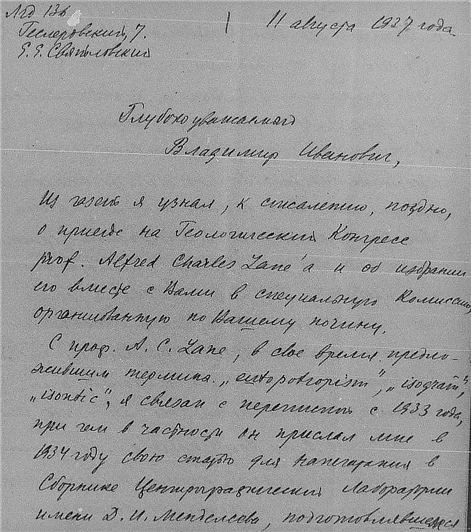 Лгд 136
Геслеровский, 7.
Е. Е. Святловский
11 августа 1937 года.
Глубокоуважаемый
Владимир Иванович,
Из газет я узнал, к сожалению, поздно,
о приезде на Геологический Конгресс
prof. Alfred Charles Lane'а и об избрании
его вместе с Вами в специальную Комиссию,
организованную по Вашему почину.
С проф. A. C. Lane, в свое время предло-
жившим термина „ "isogram",
"isontic", я связан с перепиской с 1933 года,
при чем в частности он прислал мне в
1934 году свою статью для напечатания в
Сборнике Центрографической Лаборатории
имени Д. И. Менделеева, подготовлявшемся